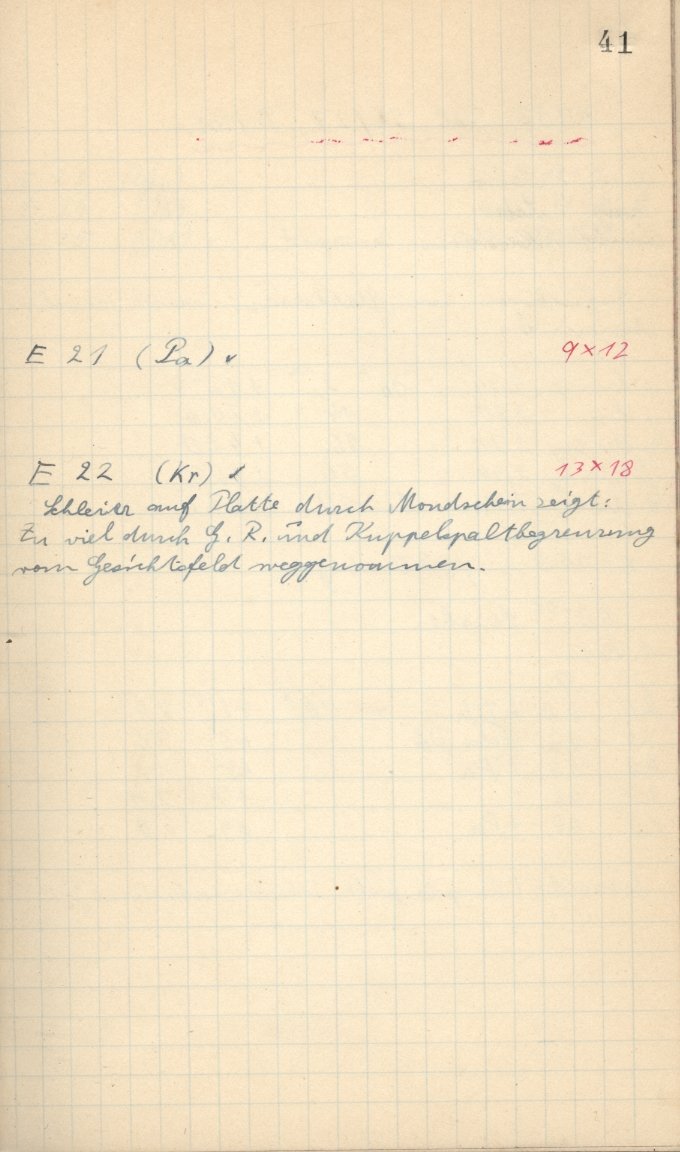 41
E 21 (Pa) ✓ 9×12
E 22 (Kr) ✓ 13×18
Schleier auf Platte durch Mondschein zeigt:
Zu viel durch G. R. und Kuppelspaltbegrenzung
vom Gesichtsfeld weggenommen.